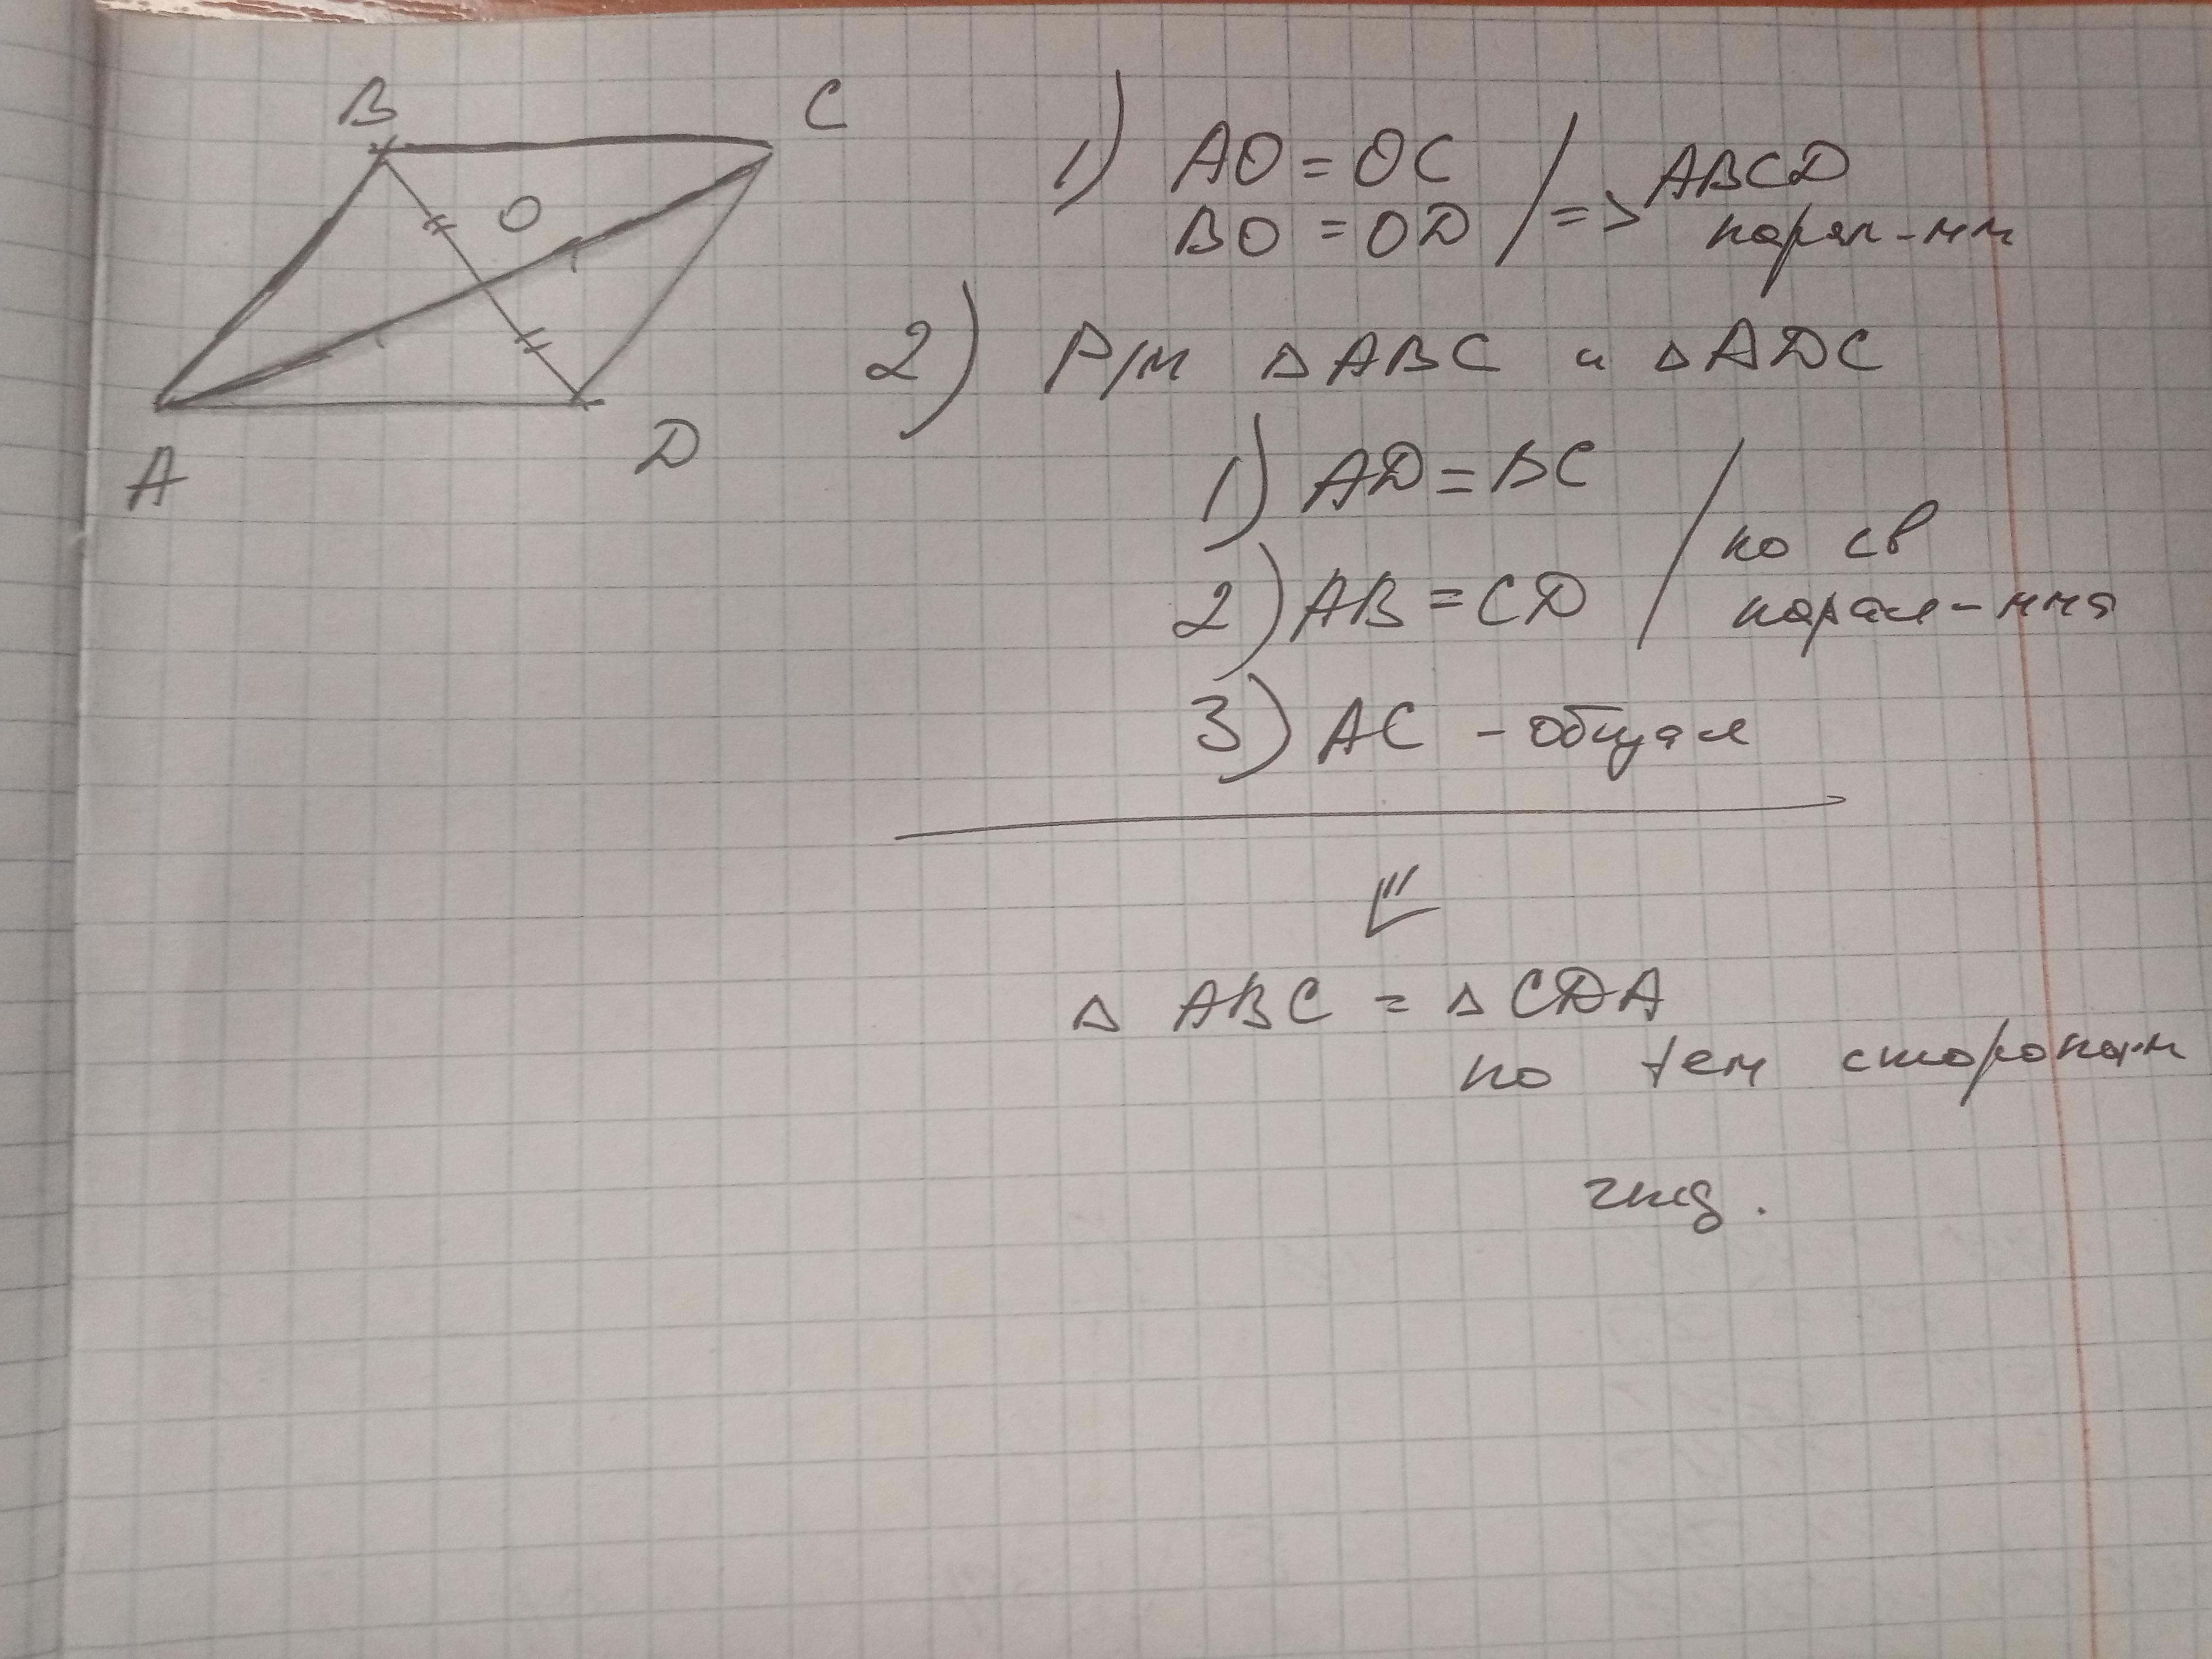 B
C
O
A
D
1) AO = OC
BO = OD / => ABCD
парал-мм
2) Р/м △ABC и △ADC
1) AD = BC
2) AB = CD / по св
парал-мма
3) AC - общая
△ ABC = △ CDA
по трем сторонам
чтд.